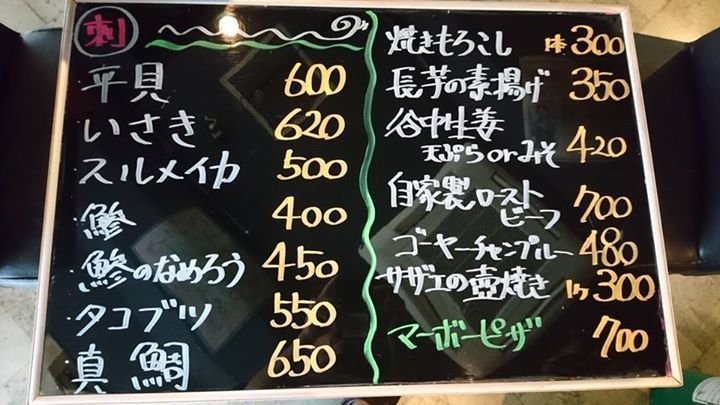 刺
平貝 600
いさき 620
スルメイカ 500
鯵 400
鯵のなめろう 450
タコブツ 550
真鯛 650
焼きもろこし 1本300
長芋の素揚げ 350
谷中生姜
天ぷらorみそ 420
自家製ロースト
ビーフ 700
ゴーヤーチャンプルー 480
サザエの壺焼き 1ケ300
マーボーピザ 700